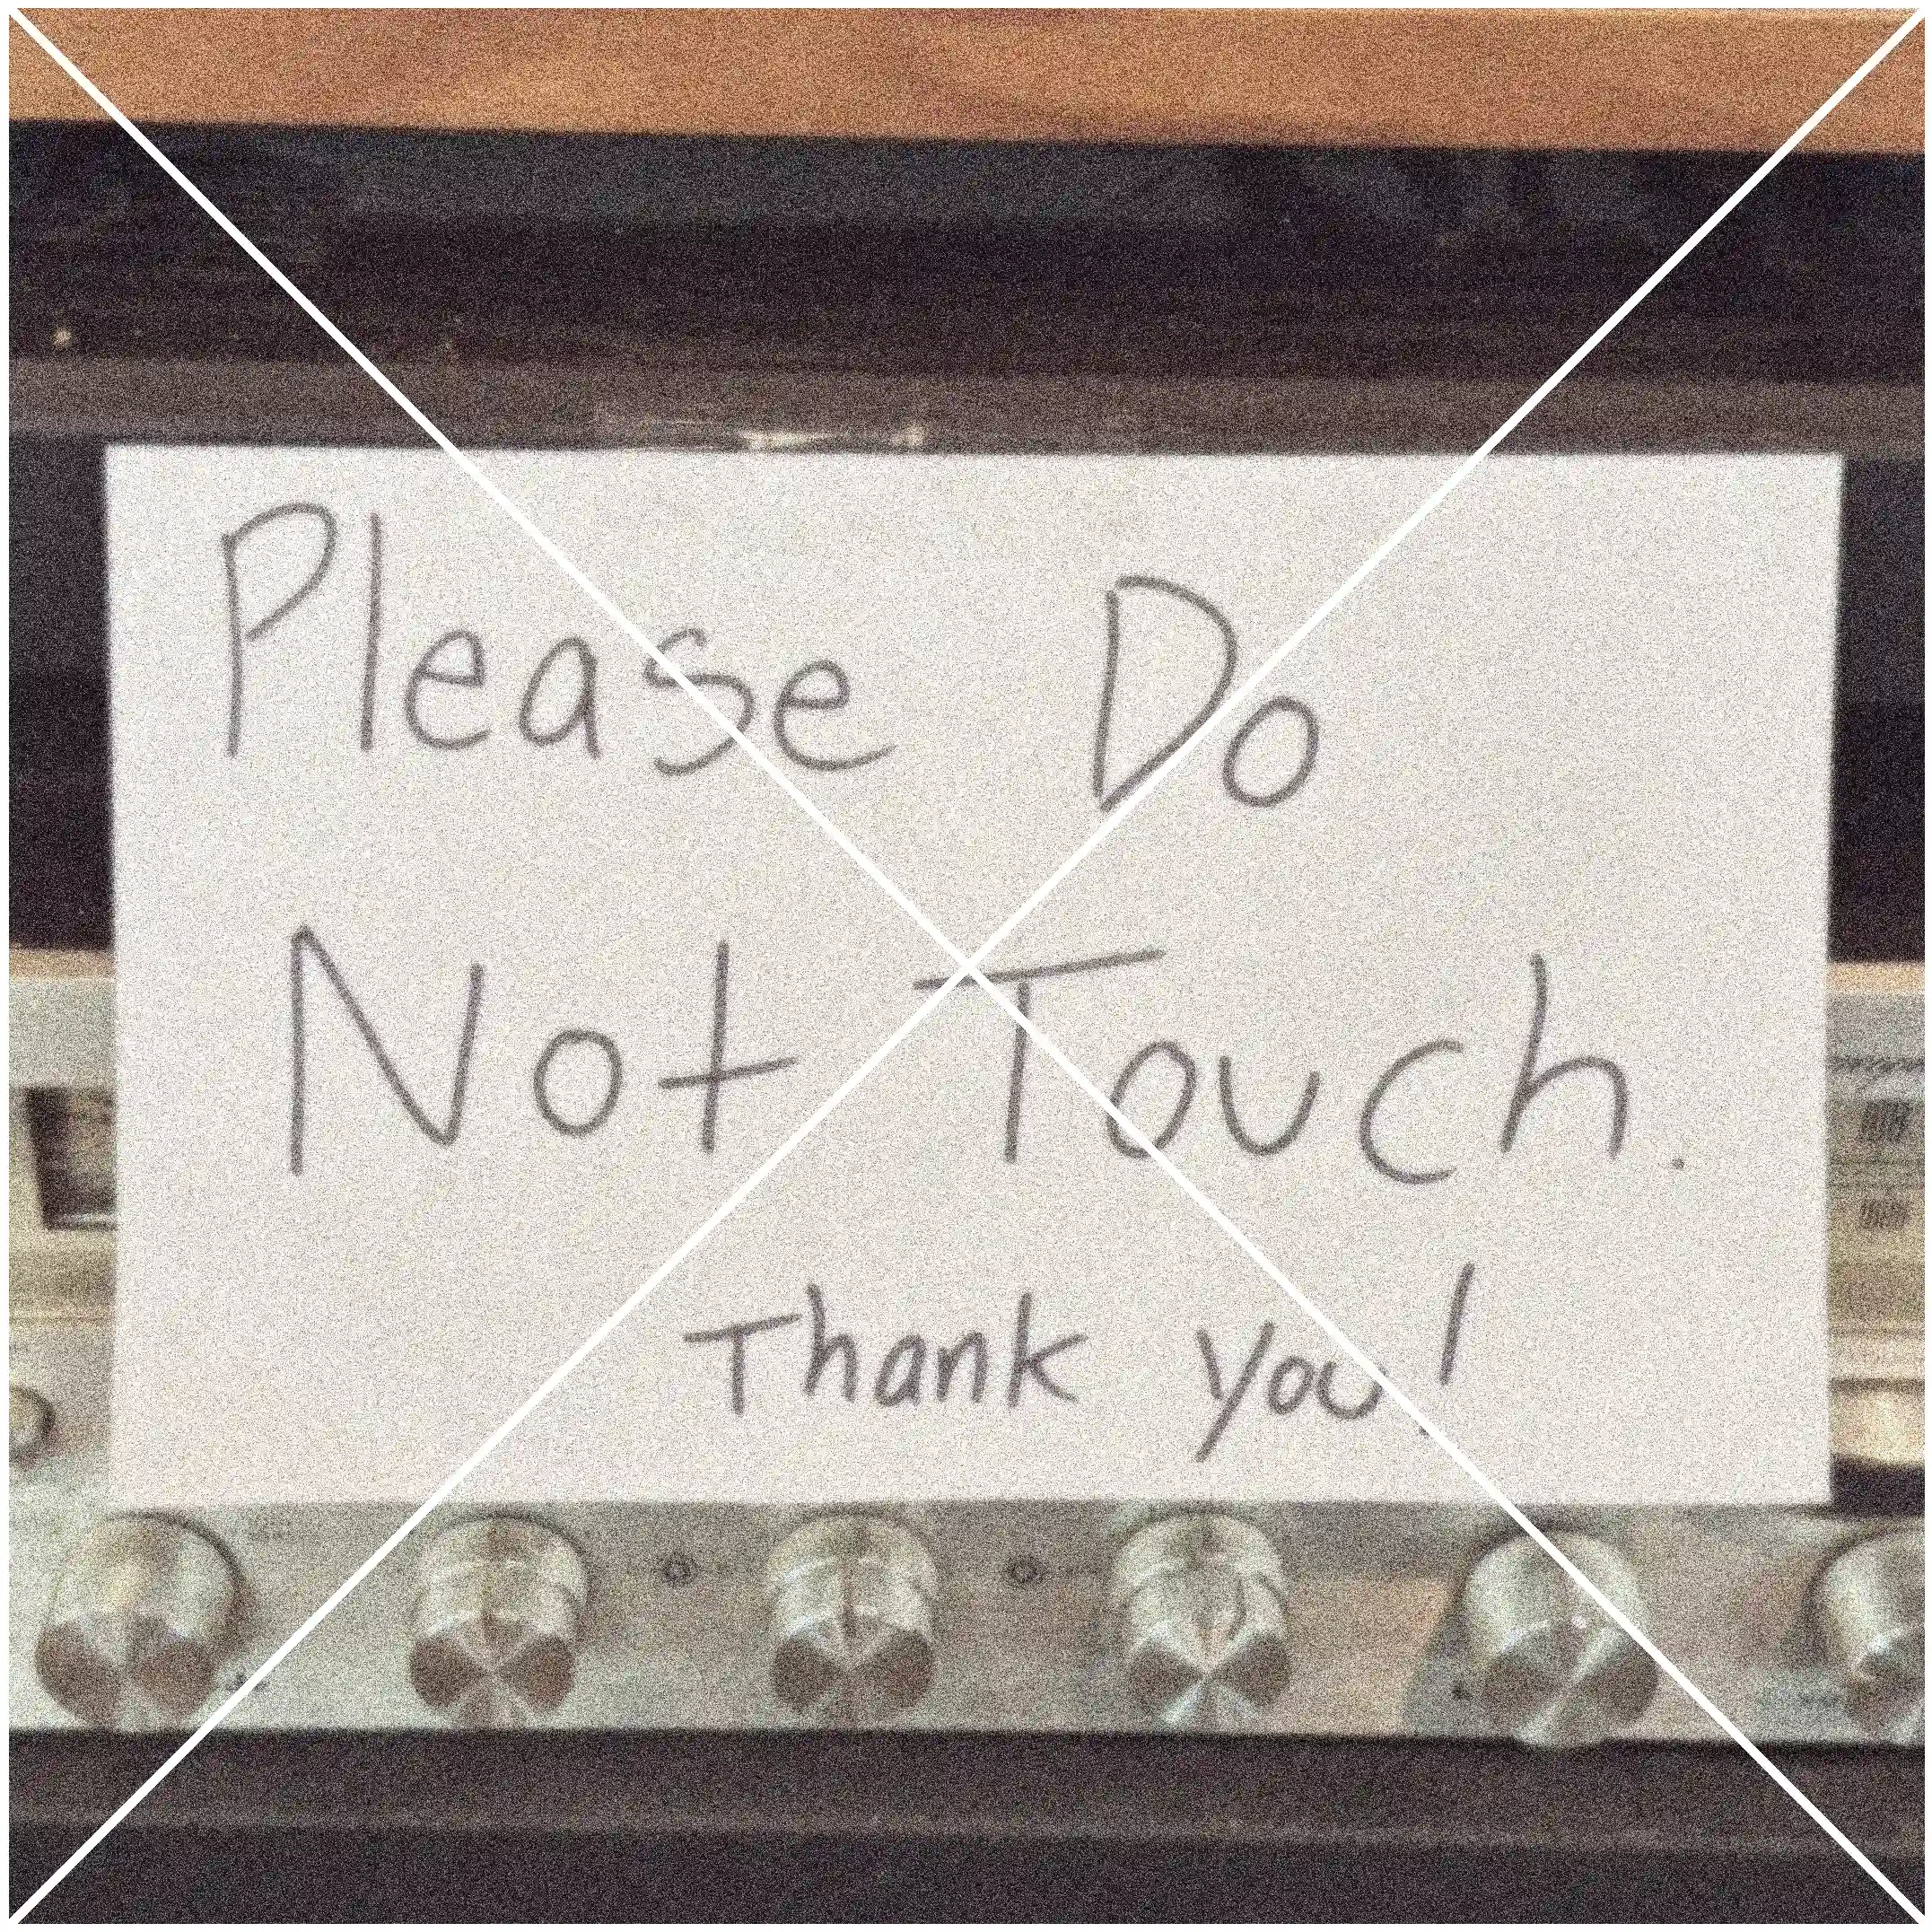 Please Do
Not Touch.
Thank you!